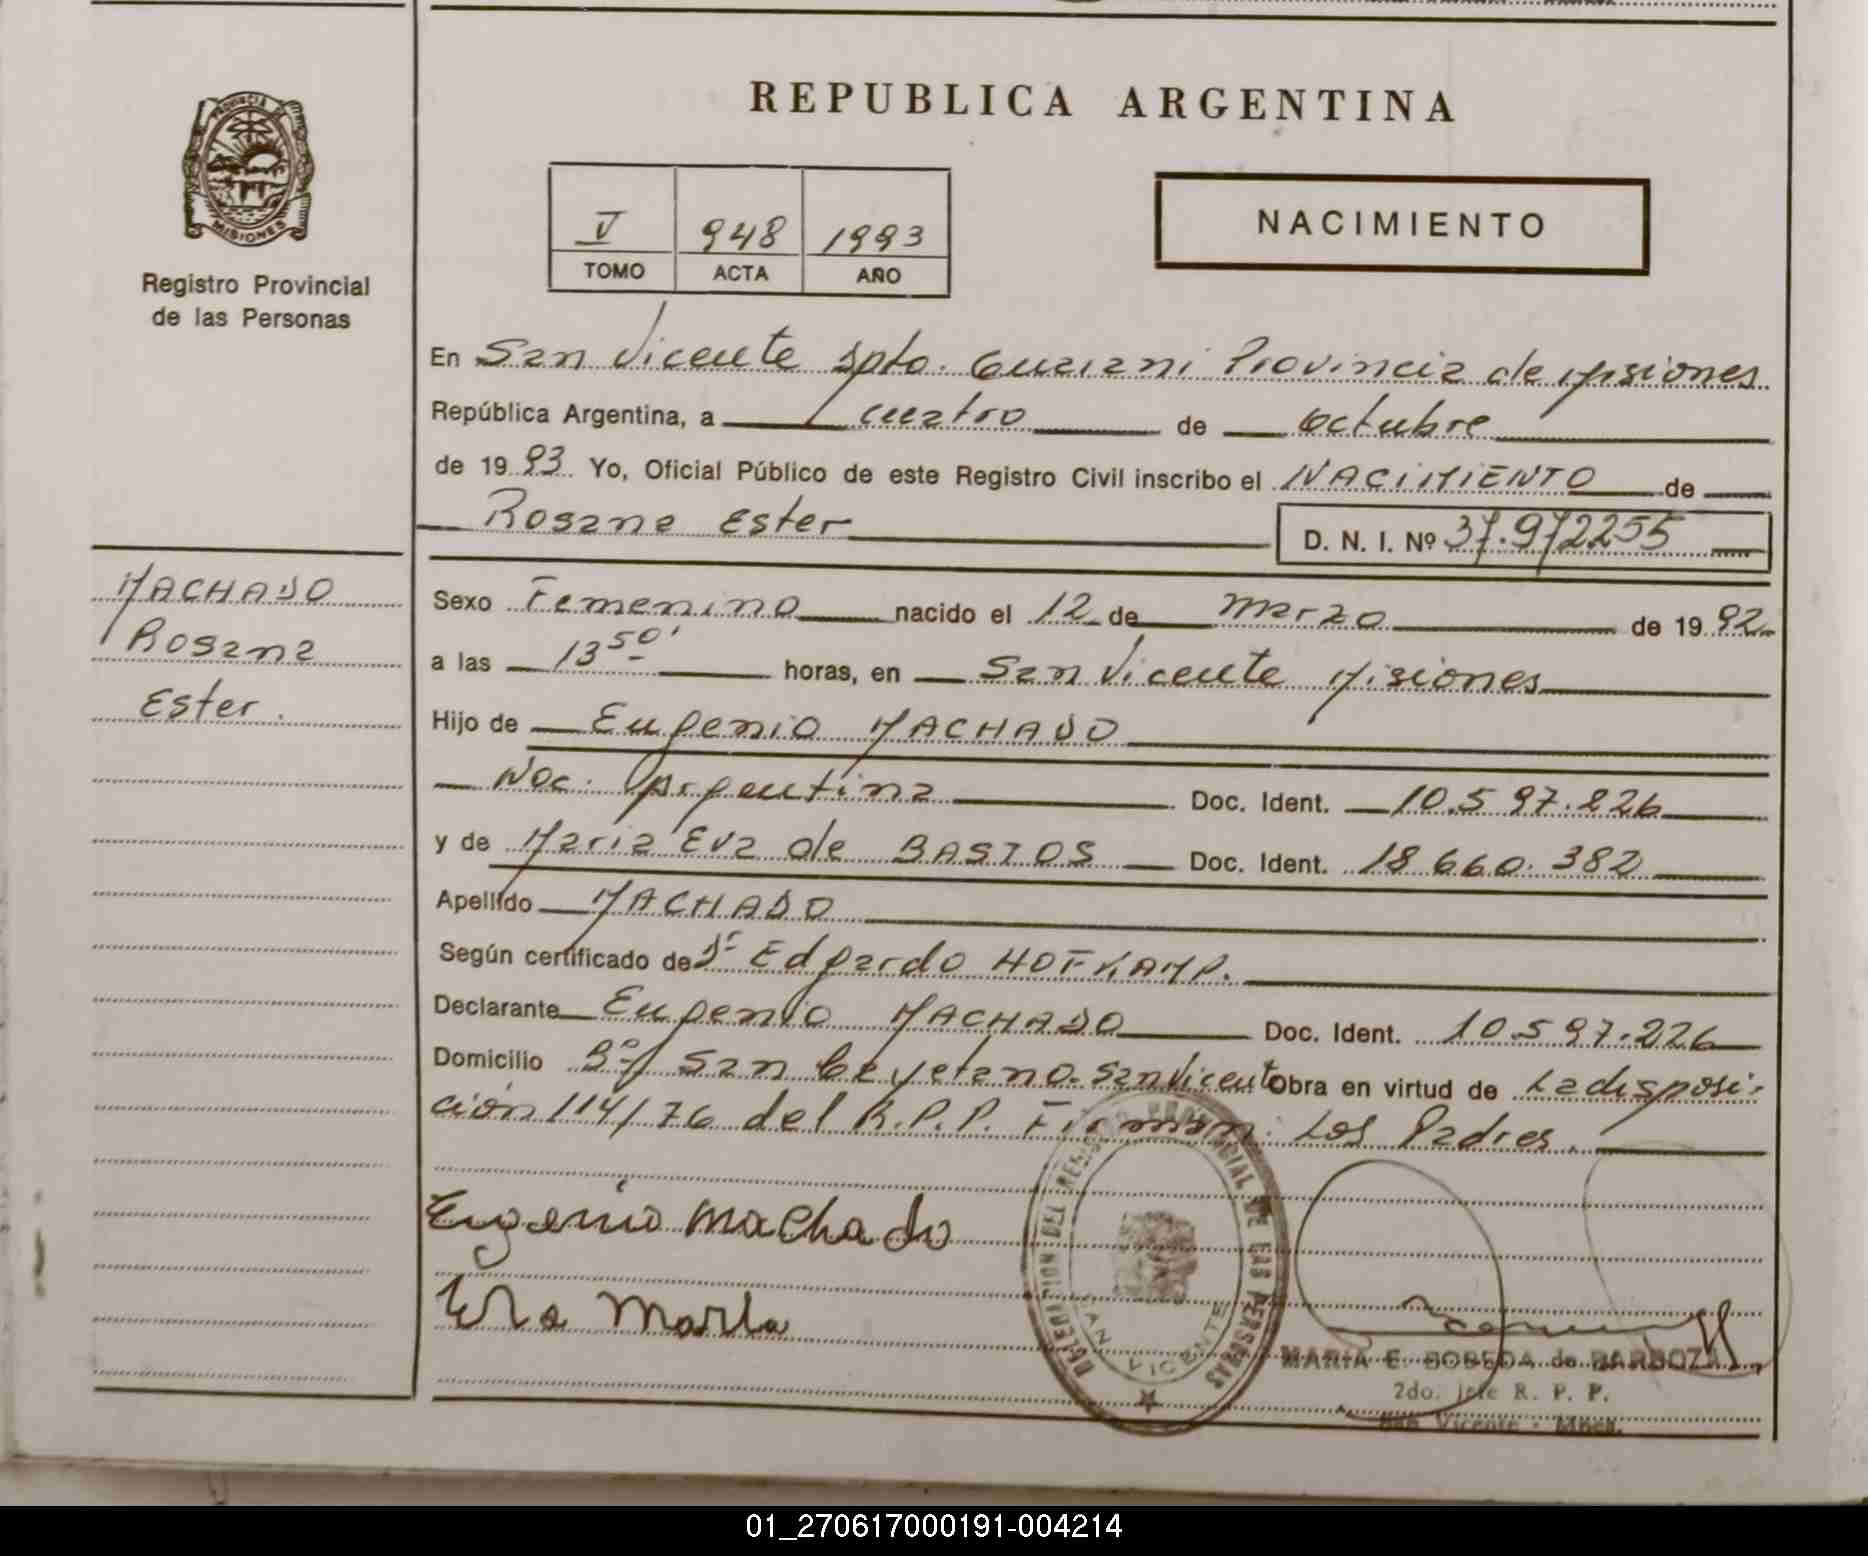 REPUBLICA ARGENTINA
PROVINCIA DE
MISIONES
Registro Provincial
de las Personas
V 948 1993
TOMO ACTA AÑO
NACIMIENTO
En San Vicente Dpto. Guarani Provincia de Misiones
República Argentina, a cuatro de octubre
de 1993 Yo, Oficial Público de este Registro Civil inscribo el NACIMIENTO de
Rosana Ester D. N. I. Nº 37.972255
MACHADO
Rosana
Ester.
Sexo Femenino nacido el 12 de marzo de 1992
a las 13 50' horas, en San Vicente Misiones
Hijo de Eugenio MACHADO
Nac. Argentina Doc. Ident. 10.597.226
y de Maria Eva de BASTOS Doc. Ident. 18.660.382
Apellido MACHADO
Según certificado de Dr Edgardo HOFKAMP.
Declarante Eugenio MACHADO Doc. Ident. 10.597.226
Domicilio Bº San Cayetano-San Vicente Obra en virtud de La disposi-
ción 114/76 del R.P.P. Firman: Los Padres.
Eugenio Machado
Eva Marta
DELEGACION DEL REGISTRO PROVINCIAL DE LAS PERSONAS
SAN VICENTE
MARIA E. BOBEDA de BARBOZA
2do. Jefe R. P. P.
San Vicente - Mnes.
01_270617000191-004214